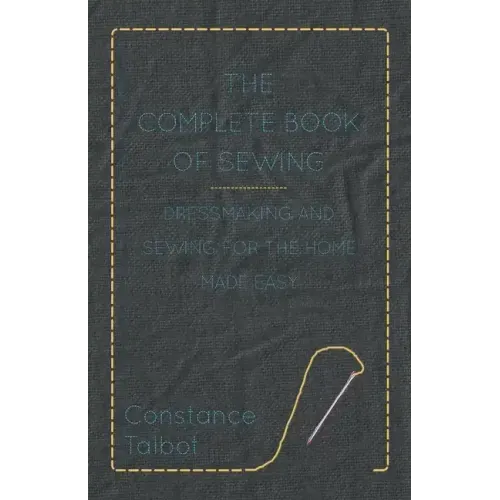 THE
COMPLETE BOOK
OF SEWING
DRESSMAKING AND
SEWING FOR THE HOME
MADE EASY
Constance
Talbot